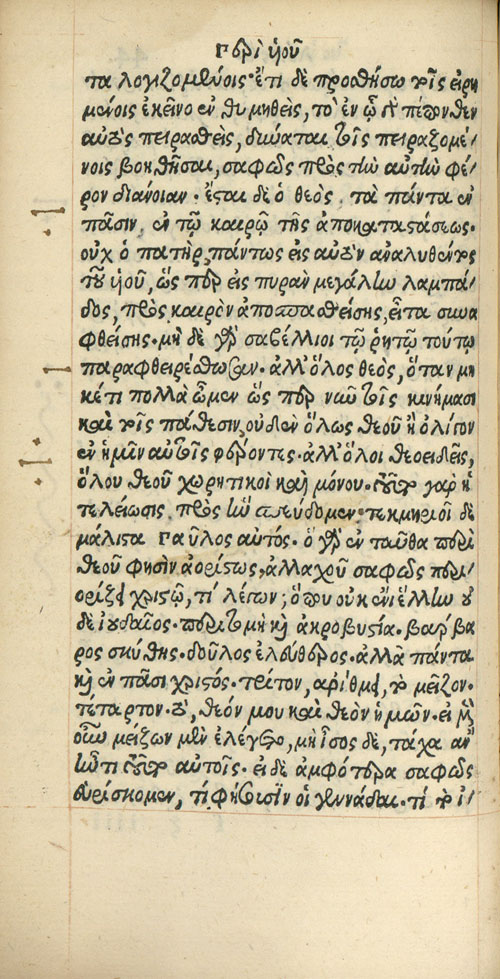 Περὶ ὑιοῦ
τα λογιζομένοις· ἔτι δὲ προσθήσω τοῖς εἰρη
μένοις ἐκεῖνο ἐνθυμηθεὶς, τὸ ἐν ᾧ γὰρ πέπονθεν
αὐτὸς πειρασθεὶς, δύναται τοῖς πειραζομέ/
νοις βοηθῆσαι, σαφῶς πρὸς τὴν αὐτὴν φέ/
ρον διάνοιαν· ἔσται δὲ ὁ θεὸς τὰ πάντα ἐν
πᾶσιν ἐν τῷ καιρῷ τῆς ἀποκαταστάσεως·
οὐχ ὁ πατὴρ, πάντως εἰς αὐτὸν ἀναλυθέντος
τοῦ ὑιοῦ, ὥσπερ εἰς πυρὰν μεγάλην λαμπά/
δος, πρὸς καιρὸν ἀποσπασθείσης, εἶτα συνα
φθείσης· μὴ δὲ γὰρ σαβέλλιοι τῷ ῥητῷ τούτῳ
παραφθειρέσθωσαν· ἀλλ' ὅλος θεὸς, ὅταν μη
κέτι πολλὰ ὦμεν ὥσπερ νῦν τοῖς κινήμασι
καὶ τοῖς πάθεσιν, οὐδὲν ὅλως θεοῦ ἢ ὀλίγον
ἐν ἡμῖν αὐτοῖς φέροντες· ἀλλ' ὅλοι θεοειδεῖς,
ὅλου θεοῦ χωρητικοὶ καὶ μόνου· τοῦτο γὰρ ἡ
τελείωσις, πρὸς ἣν σπεύδομεν· τεκμηριοῖ δὲ
μάλιστα Παῦλος αὐτός· ὃ γὰρ ἐνταῦθα περὶ
θεοῦ φησὶν ἀορίστως, ἀλλαχοῦ σαφῶς περι/
ορίζει χριστῷ, τί λέγων; ὅπου οὐκ ἔνι ἕλλην οὐ
δὲ ἰουδαῖος· περιτομὴ καὶ ἀκροβυστία· βάρβα
ρος σκύθης· δοῦλος ἐλεύθερος· ἀλλὰ πάντα
καὶ ἐν πᾶσι χριστός· τρίτον, ἀρίθμει, τὸ μεῖζον·
τέταρτον· τὸ, θεόν μου καὶ θεὸν ἡμῶν· εἰ μὲν
οὖν μείζων μὲν ἐλέγετο, μὴ ἴσος δὲ, τάχα ἂν
ἦν τι τοῦτο αὐτοῖς· εἰ δὲ ἀμφότερα σαφῶς
εὑρίσκομεν, τί φήσουσιν οἱ γεννάδαι· τί τὸ ἰ/